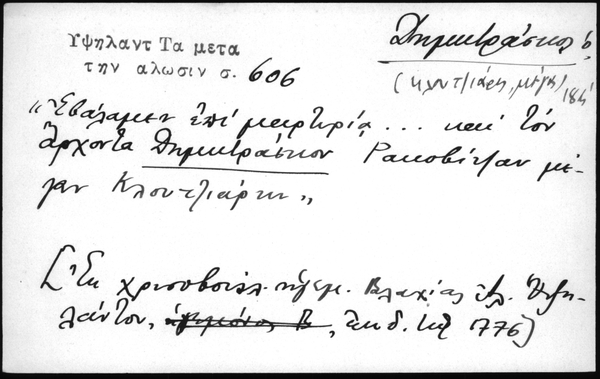 Υψηλαντ Τα μετα
την αλωσιν σ. 606
Δημητράσκος ὁ
(κλουτζιάρης, μέγας)
„Ἐβάλαμεν ἐπὶ μαρτυρίᾳ ... καὶ τὸν
ἄρχοντα Δημητράσκον Ρακοβίτζαν μέ-
γαν Κλουτζιάρην„
[Ἐκ χρυσοβούλ. ἡγεμ. Βλαχίας Ἀλ. Ὑψη-
λάντου, ἐκδ. τῇ 1776]